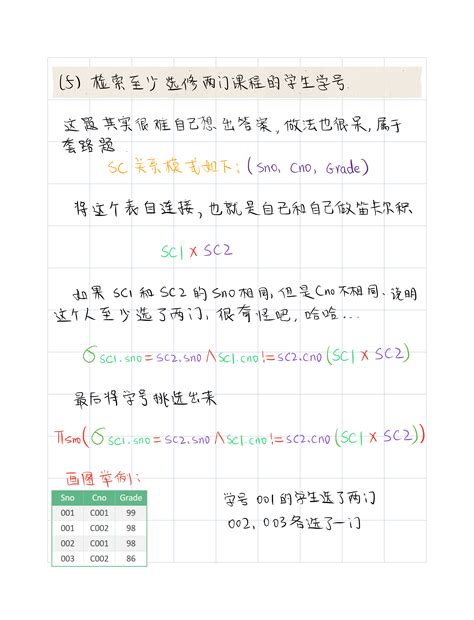 (5) 检索至少选修两门课程的学生学号
这题其实很难自己想出答案，做法也很呆，属于
套路题
SC关系模式如下：(Sno, Cno, Grade)
将这个表自连接，也就是自己和自己做笛卡尔积
SC1 x SC2
如果 SC1 和 SC2 的 Sno 相同，但是 Cno 不相同. 说明
这个人至少选了两门，很有怪吧，哈哈...
σ SC1.sno = SC2.sno ∧ SC1.cno != SC2.cno (SC1 x SC2)
最后将学号挑选出来
π sno (σ SC1.sno = SC2.sno ∧ SC1.cno != SC2.cno (SC1 x SC2))
画图举例：
Sno Cno Grade
001 C001 99
001 C002 98
002 C001 98
003 C002 86
学号 001 的学生选了两门
002, 003 各选了一门